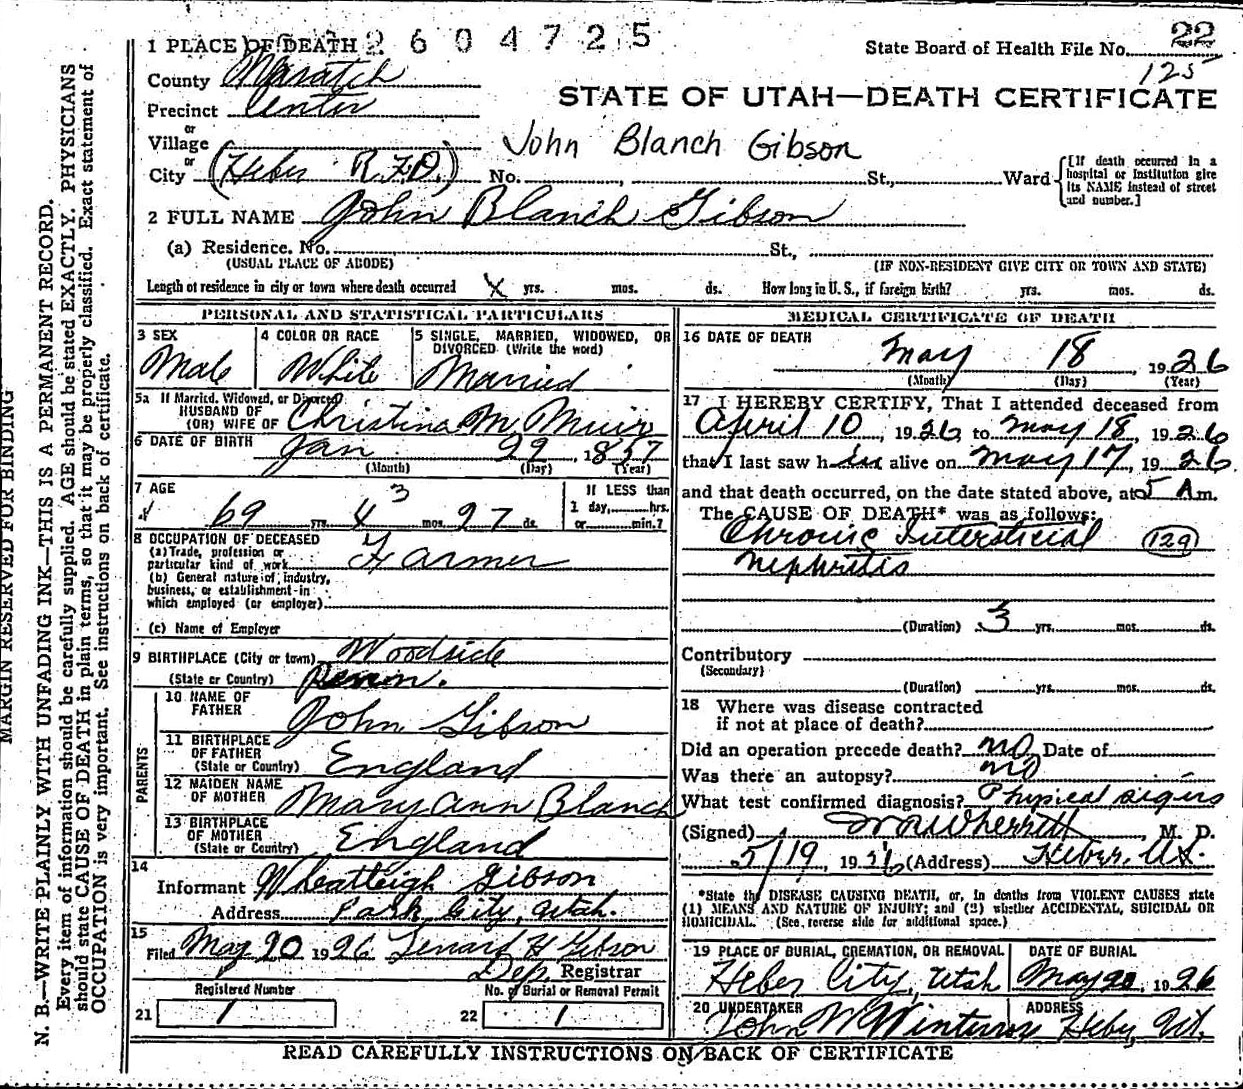 1 PLACE OF DEATH 2604725 State Board of Health File No. 22
125
County Wasatch
Precinct Center
STATE OF UTAH—DEATH CERTIFICATE
or
Village John Blanch Gibson
or
City (Heber R.F.D.) No. , St., Ward
[If death occurred in a hospital or institution give its NAME instead of street and number.]
2 FULL NAME John Blanch Gibson
(a) Residence. No. St.,
(USUAL PLACE OF ABODE) (IF NON-RESIDENT GIVE CITY OR TOWN AND STATE)
Length of residence in city or town where death occurred X yrs. mos. ds. How long in U. S., if foreign birth? yrs. mos. ds.
PERSONAL AND STATISTICAL PARTICULARS
3 SEX Male
4 COLOR OR RACE White
5 SINGLE, MARRIED, WIDOWED, OR DIVORCED (Write the word) Married
5a If Married, Widowed, or Divorced
HUSBAND OF
(OR) WIFE OF Christina M Muir
6 DATE OF BIRTH Jan 29, 1857
(Month) (Day) (Year)
7 AGE 69 yrs. 4 3 mos. 27 ds.
If LESS than
1 day, hrs.
or min.?
8 OCCUPATION OF DECEASED
(a) Trade, profession or
particular kind of work Farmer
(b) General nature of industry,
business, or establishment in
which employed (or employer)
(c) Name of Employer
9 BIRTHPLACE (City or town) Woodside
(State or Country)
PARENTS
10 NAME OF FATHER John Gibson
11 BIRTHPLACE OF FATHER
(State or Country) England
12 MAIDEN NAME OF MOTHER Mary Ann Blanch
13 BIRTHPLACE OF MOTHER
(State or Country) England
14
Informant Wheatleigh Gibson
Address Park City, Utah.
15
Filed May 20 1926 H Gibson
Dep. Registrar
Registered Number No. of Burial or Removal Permit
21 1 22 1
MEDICAL CERTIFICATE OF DEATH
16 DATE OF DEATH
May 18 , 1926
(Month) (Day) (Year)
17 I HEREBY CERTIFY, That I attended deceased from
April 10, 1926, to May 18, 1926
that I last saw him alive on May 17, 1926
and that death occurred, on the date stated above, at 5 A m.
The CAUSE OF DEATH* was as follows:
Chronic Intersticial (129)
Nephritis
(Duration) 3 yrs. mos. ds.
Contributory
(Secondary)
(Duration) yrs. mos. ds.
18 Where was disease contracted
if not at place of death?
Did an operation precede death? no Date of
Was there an autopsy? no
What test confirmed diagnosis? Physical signs
(Signed) Wherritt, M. D.
5/19, 1926 (Address) Heber, Ut.
*State the DISEASE CAUSING DEATH, or, in deaths from VIOLENT CAUSES state
(1) MEANS AND NATURE OF INJURY; and (2) whether ACCIDENTAL, SUICIDAL OR
HOMICIDAL. (See reverse side for additional space.)
19 PLACE OF BURIAL, CREMATION, OR REMOVAL DATE OF BURIAL
Heber City, Utah May 20, 1926
20 UNDERTAKER ADDRESS
John W Winterrose Heber, Ut.
READ CAREFULLY INSTRUCTIONS ON BACK OF CERTIFICATE
MARGIN RESERVED FOR BINDING
N. B.—WRITE PLAINLY WITH UNFADING INK—THIS IS A PERMANENT RECORD.
Every item of information should be carefully supplied. AGE should be stated EXACTLY. PHYSICIANS
should state CAUSE OF DEATH in plain terms, so that it may be properly classified. Exact statement of
OCCUPATION is very important. See instructions on back of certificate.